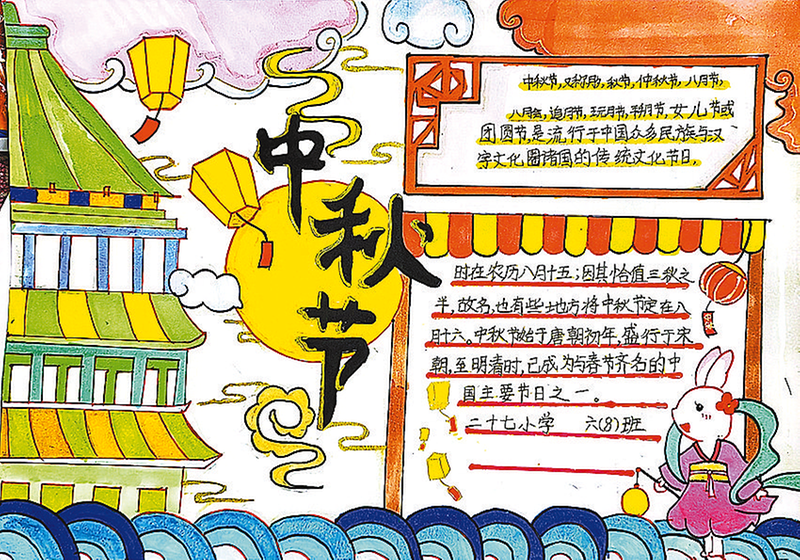 中秋节
中秋节,又称月夕,秋节,仲秋节,八月节,
八月会,追月节,玩月节,拜月节,女儿节或
团圆节,是流行于中国众多民族与汉
字文化圈诸国的传统文化节日,
时在农历八月十五;因其恰值三秋之
半,故名,也有些地方将中秋节定在八
月十六。中秋节始于唐朝初年,盛行于宋
朝,至明清时,已成为与春节齐名的中
国主要节日之一。
二十七小学 六(8)班